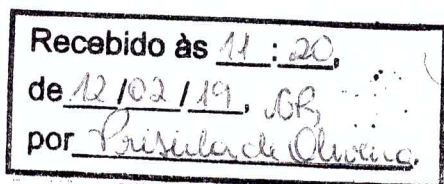 Recebido às 11:20,
de 12/02/19,
por Priscila de Oliveira.